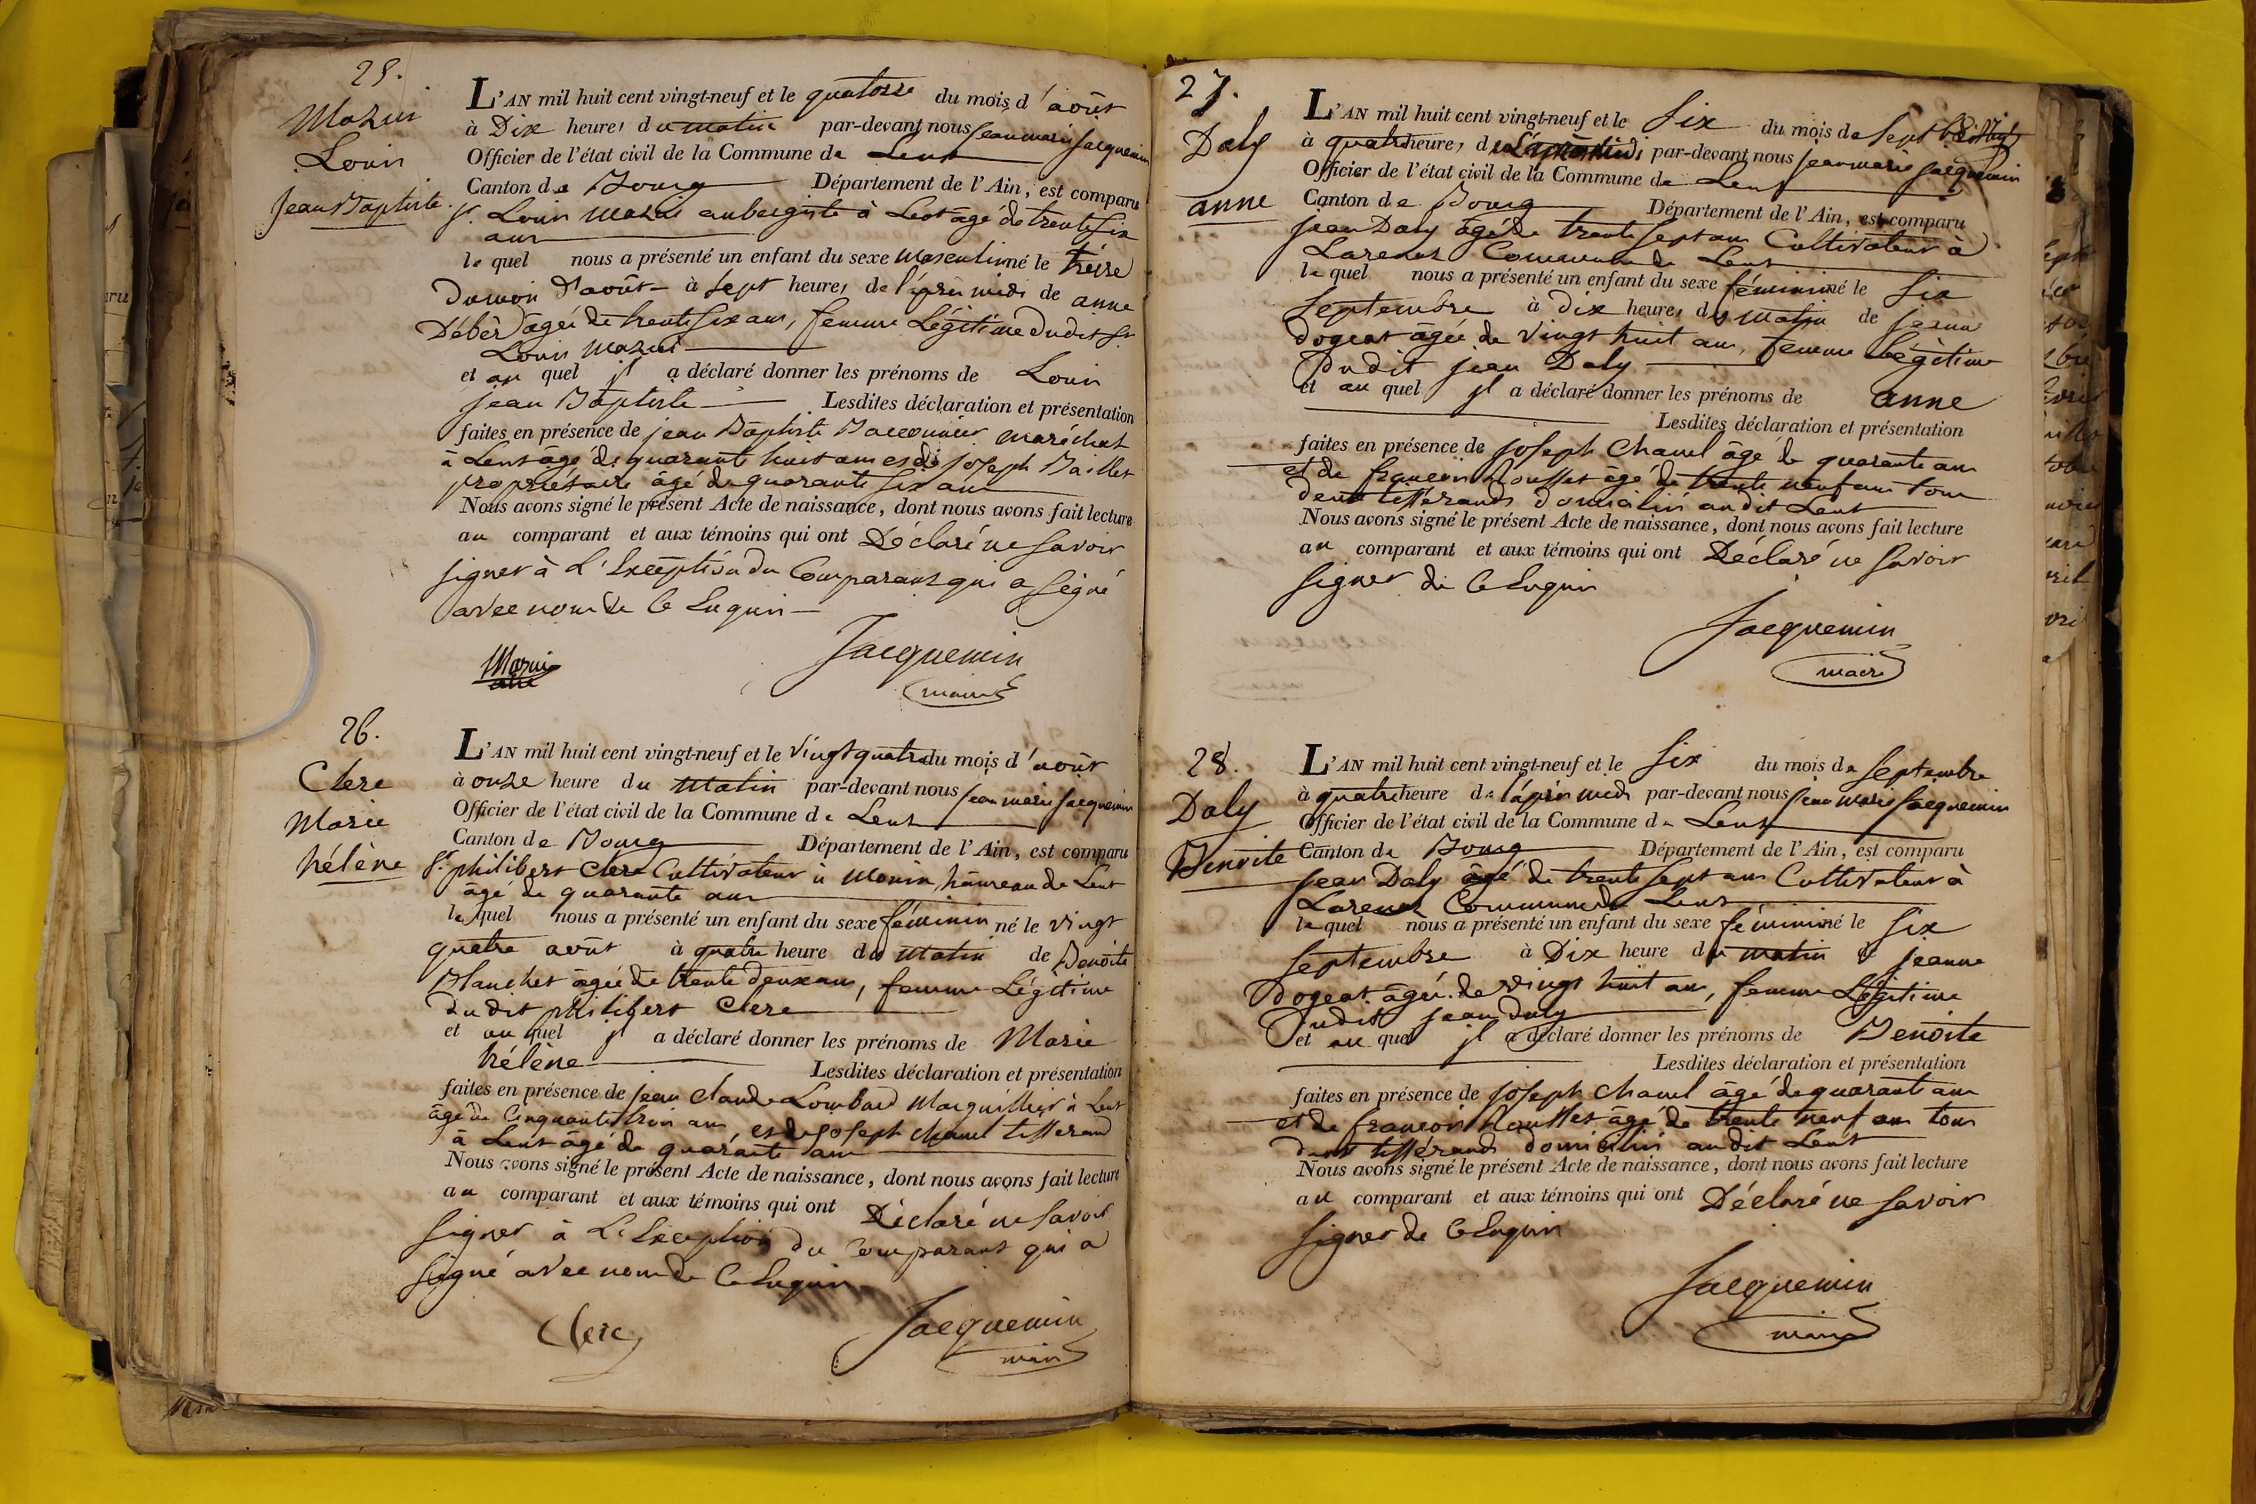 25.
Mazui
Louis
Jean Baptiste
L'AN mil huit cent vingt-neuf et le quatorze du mois d'août
à Dix heures du matin par-devant nous jean marie Jacquemin
Officier de l'état civil de la Commune de Lent
Canton de Bourg Département de l'Ain, est comparu
Sr. Louis Mazui aubergiste à Lent âgé de trente six
ans
lequel nous a présenté un enfant du sexe masculin né le treize
du mois d'août à sept heures de l'après midi de anne
âgée de trente six ans, femme Légitime dudit Sr
Louis Mazui
et au quel il a déclaré donner les prénoms de Louis
jean Baptiste Lesdites déclaration et présentation
faites en présence de jean Baptiste maréchal
à Lent âgé de quarante huit ans et de joseph Baillet
propriétaire âgé de quarante six ans
Nous avons signé le présent Acte de naissance, dont nous avons fait lecture
au comparant et aux témoins qui ont Déclaré ne savoir
signer à L'Exception du Comparant qui a signé
avec nous de Ce Enquis
Mazui Jacquemin
maire
26.
Clerc
Marie
hélène
L'AN mil huit cent vingt-neuf et le vingt quatre du mois d'août
à onze heure du matin par-devant nous jean marie Jacquemin
Officier de l'état civil de la Commune de Lent
Canton de Bourg Département de l'Ain, est comparu
Sr. philibert Clerc Cultivateur à hameau de Lent
âgé de quarante ans
lequel nous a présenté un enfant du sexe féminin né le vingt
quatre août à quatre heure du matin de Benoite
Blanchet âgée de trente deux ans, femme Légitime
dudit philibert Clerc
et au quel il a déclaré donner les prénoms de Marie
hélène Lesdites déclaration et présentation
faites en présence de jean Claude Lombard Marguillier à Lent
âgé de Cinquante trois ans et de joseph Chanel tisserand
à Lent âgé de quarante ans
Nous avons signé le présent Acte de naissance, dont nous avons fait lecture
au comparant et aux témoins qui ont Déclaré ne savoir
signer à L'Exception du Comparant qui a
signé avec nous de Ce Enquis
Clerc Jacquemin
maire
27.
Daly
anne
L'AN mil huit cent vingt-neuf et le six du mois de
à quatre heures de L'après midi par-devant nous jean marie Jacquemin
Officier de l'état civil de la Commune de Lent
Canton de Bourg Département de l'Ain, est comparu
jean Daly âgé de trente sept ans Cultivateur à
Commune de Lent
lequel nous a présenté un enfant du sexe féminin né le six
septembre à dix heures du matin de jeanne
dogeat âgée de vingt huit ans, femme Légitime
Dudit jean Daly
et au quel il a déclaré donner les prénoms de anne
Lesdites déclaration et présentation
faites en présence de joseph Chanel âgé de quarante ans
et de françois âgé de trente neuf ans tous
deux tisserands domiciliés audit Lent
Nous avons signé le présent Acte de naissance, dont nous avons fait lecture
au comparant et aux témoins qui ont Déclaré ne savoir
signer de Ce Enquis
Jacquemin
maire
28.
Daly
Benoite
L'AN mil huit cent vingt-neuf et le six du mois de septembre
à quatre heure de l'après midi par-devant nous jean marie Jacquemin
Officier de l'état civil de la Commune de Lent
Canton de Bourg Département de l'Ain, est comparu
jean Daly âgé de trente sept ans Cultivateur à
Commune de Lent
lequel nous a présenté un enfant du sexe féminin né le six
septembre à Dix heure du matin de jeanne
dogeat âgée de vingt huit ans, femme Légitime
Dudit jean Daly
et au quel il a déclaré donner les prénoms de Benoite
Lesdites déclaration et présentation
faites en présence de joseph Chanel âgé de quarante ans
et de françois âgé de trente neuf ans tous
deux tisserands domiciliés audit Lent
Nous avons signé le présent Acte de naissance, dont nous avons fait lecture
au comparant et aux témoins qui ont Déclaré ne savoir
signer de Ce Enquis
Jacquemin
maire